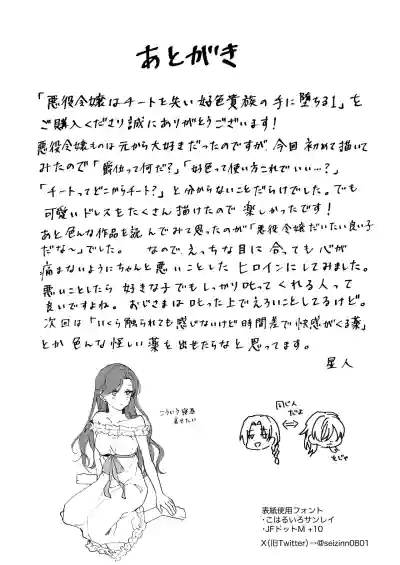 あとがき
「悪役令嬢はチートを失い好色貴族の手に堕ちる1」を
ご購入くださり誠にありがとうございます!
悪役令嬢ものは元から大好きだったのですが、今回初めて描いて
みたので「爵位って何だ?」「好色って使い方これでいい…?」
「チートってどこからチート?」と分からないことだらけでした。でも
可愛いドレスをたくさん描けたので楽しかったです!
あと色んな作品を読んでみて思ったのが「悪役令嬢だいたい良い子
だな〜」でした。なのでえっちな目に合っても心が
痛まないようにちゃんと悪いことしたヒロインにしてみました。
悪いことしたら好きな子でもしっかり叱ってくれる人って
良いですよね。おじさまは叱った上でえろいことしてるけど。
次回は「いくら触られても感じないけど時間差で快感がくる薬」
とか色んな怪しい薬を出せたらなと思ってます。
星人
こういう寝巻
着せたい
同じ人
だよ
もじゃ
表紙使用フォント
・こはるいろサンレイ
・JFドットM +10
X(旧Twitter)→@seizinn0801